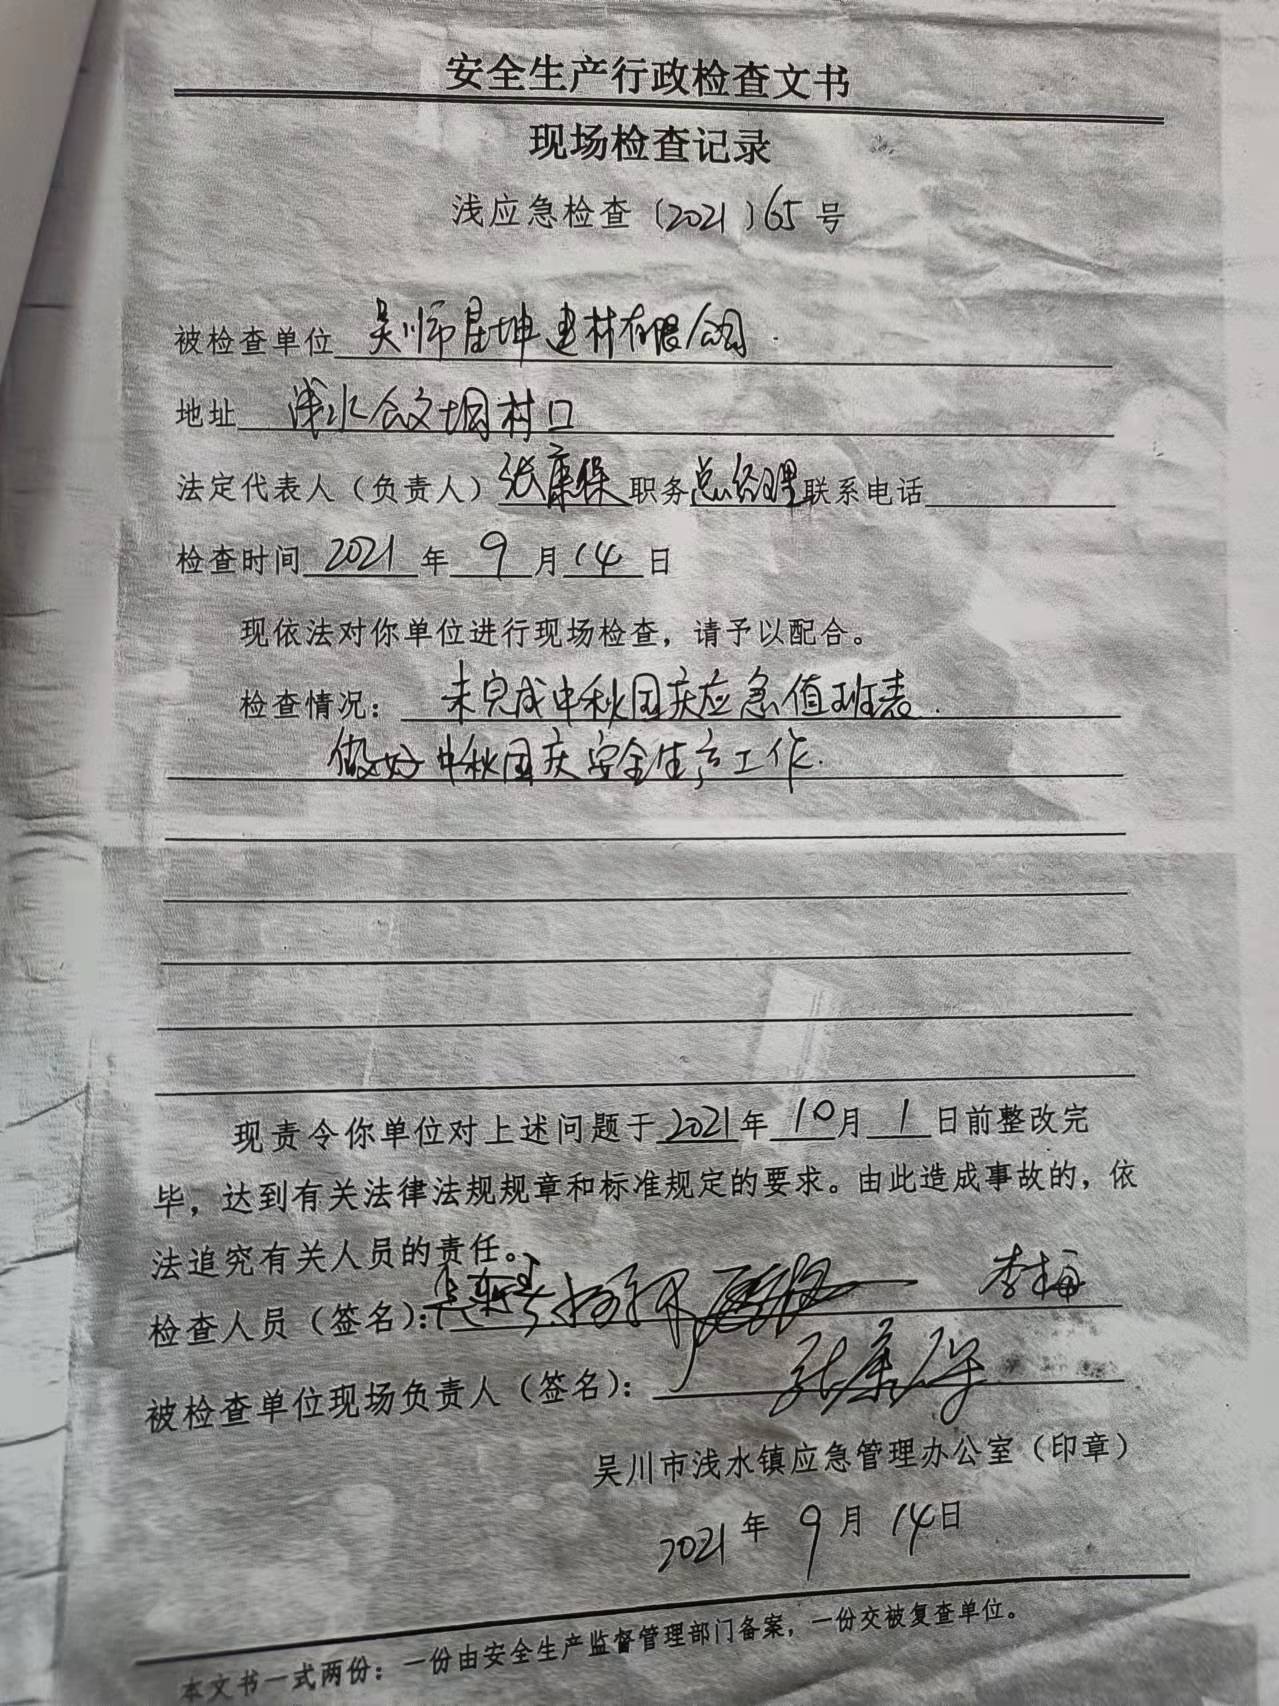 安全生产行政检查文书
现场检查记录
浅应急检查〔2021〕65号
被检查单位 吴川市星坤建材有限公司.
地址 浅水 村口
法定代表人（负责人）张康保 职务 总经理 联系电话
检查时间 2021 年 9 月 14 日
现依法对你单位进行现场检查，请予以配合。
检查情况： 未完成中秋国庆应急值班表.
做好中秋国庆安全生产工作.
现责令你单位对上述问题于 2021 年 10 月 1 日前整改完
毕，达到有关法律法规规章和标准规定的要求。由此造成事故的，依
法追究有关人员的责任。
检查人员（签名）： 李梅
被检查单位现场负责人（签名）： 张康保
吴川市浅水镇应急管理办公室（印章）
2021 年 9 月 14 日
本文书一式两份：一份由安全生产监督管理部门备案，一份交被复查单位。